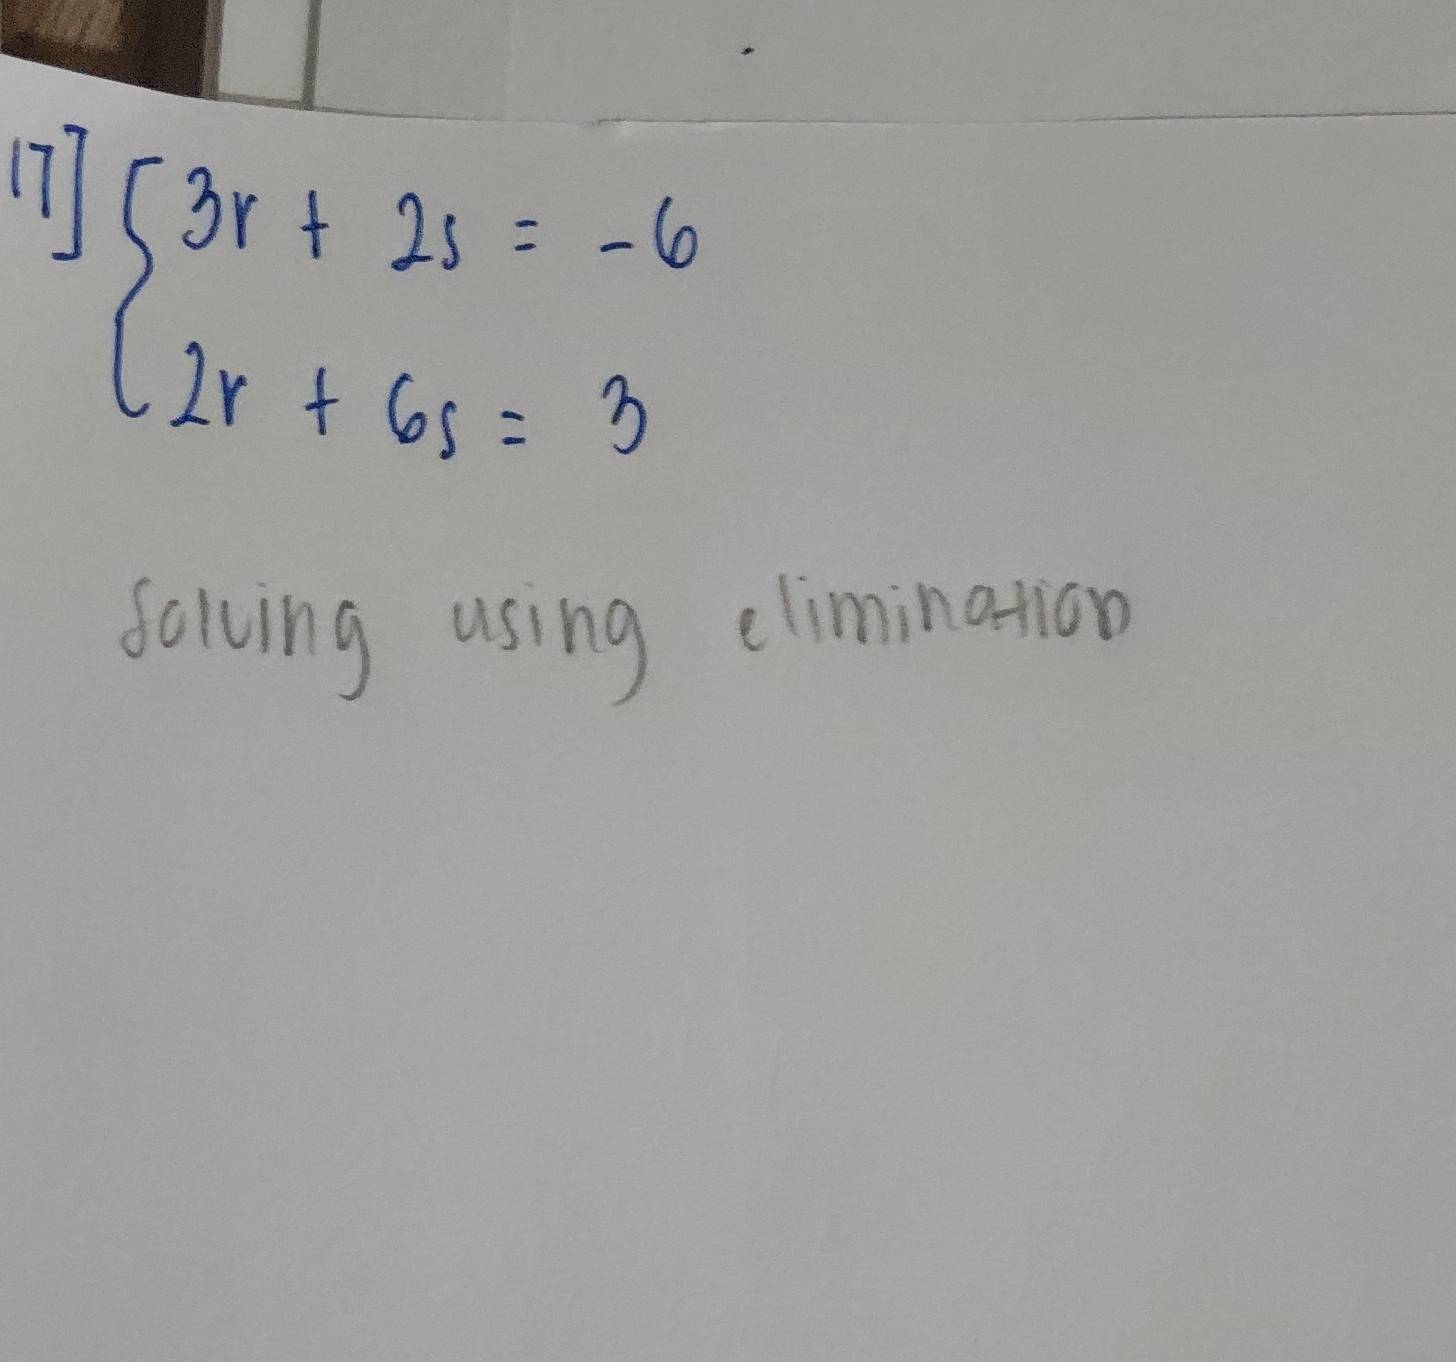 17] { 3r + 2s = -6
2r + 6s = 3
Solving using elimination